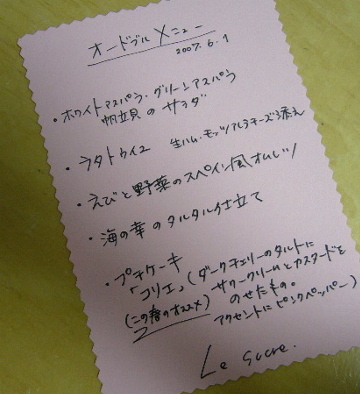 オードブルメニュー
2007.6.9
・ホワイトアスパラ・グリーンアスパラ
帆立貝のサラダ
・ラタトゥイユ 生ハム・モッツアレラチーズ添え
・えびと野菜のスペイン風オムレツ
・海の幸のタルタル仕立て
・プチケーキ
「コリエ」(ダークチェリーのタルトに
(この春のオススメ) サワークリームとカスタードを
のせたもの。
アクセントにピンクペッパー)
Le Sucre.